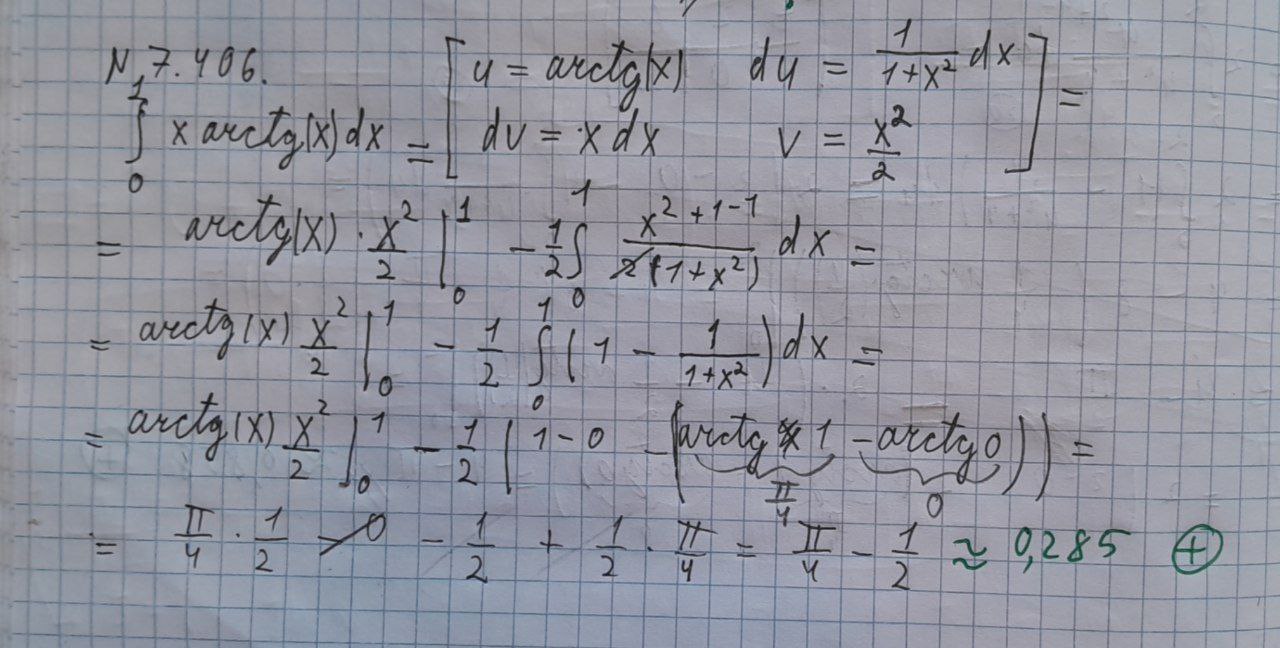 N 7.406.
∫₀¹ x arctg(x) dx = [ u = arctg(x) du = 1/(1+x²) dx
dv = x dx v = x²/2 ] =
= arctg(x) · x²/2 |₀¹ - 1/2 ∫₀¹ (x² + 1 - 1)/(1+x²) dx =
= arctg(x) x²/2 |₀¹ - 1/2 ∫₀¹ (1 - 1/(1+x²)) dx =
= arctg(x) x²/2 |₀¹ - 1/2 (1 - 0 - (arctg 1 - arctg 0)) =
π/4 0
= π/4 · 1/2 - 0 - 1/2 + 1/2 · π/4 = π/4 - 1/2 ≈ 0,285 ⊕